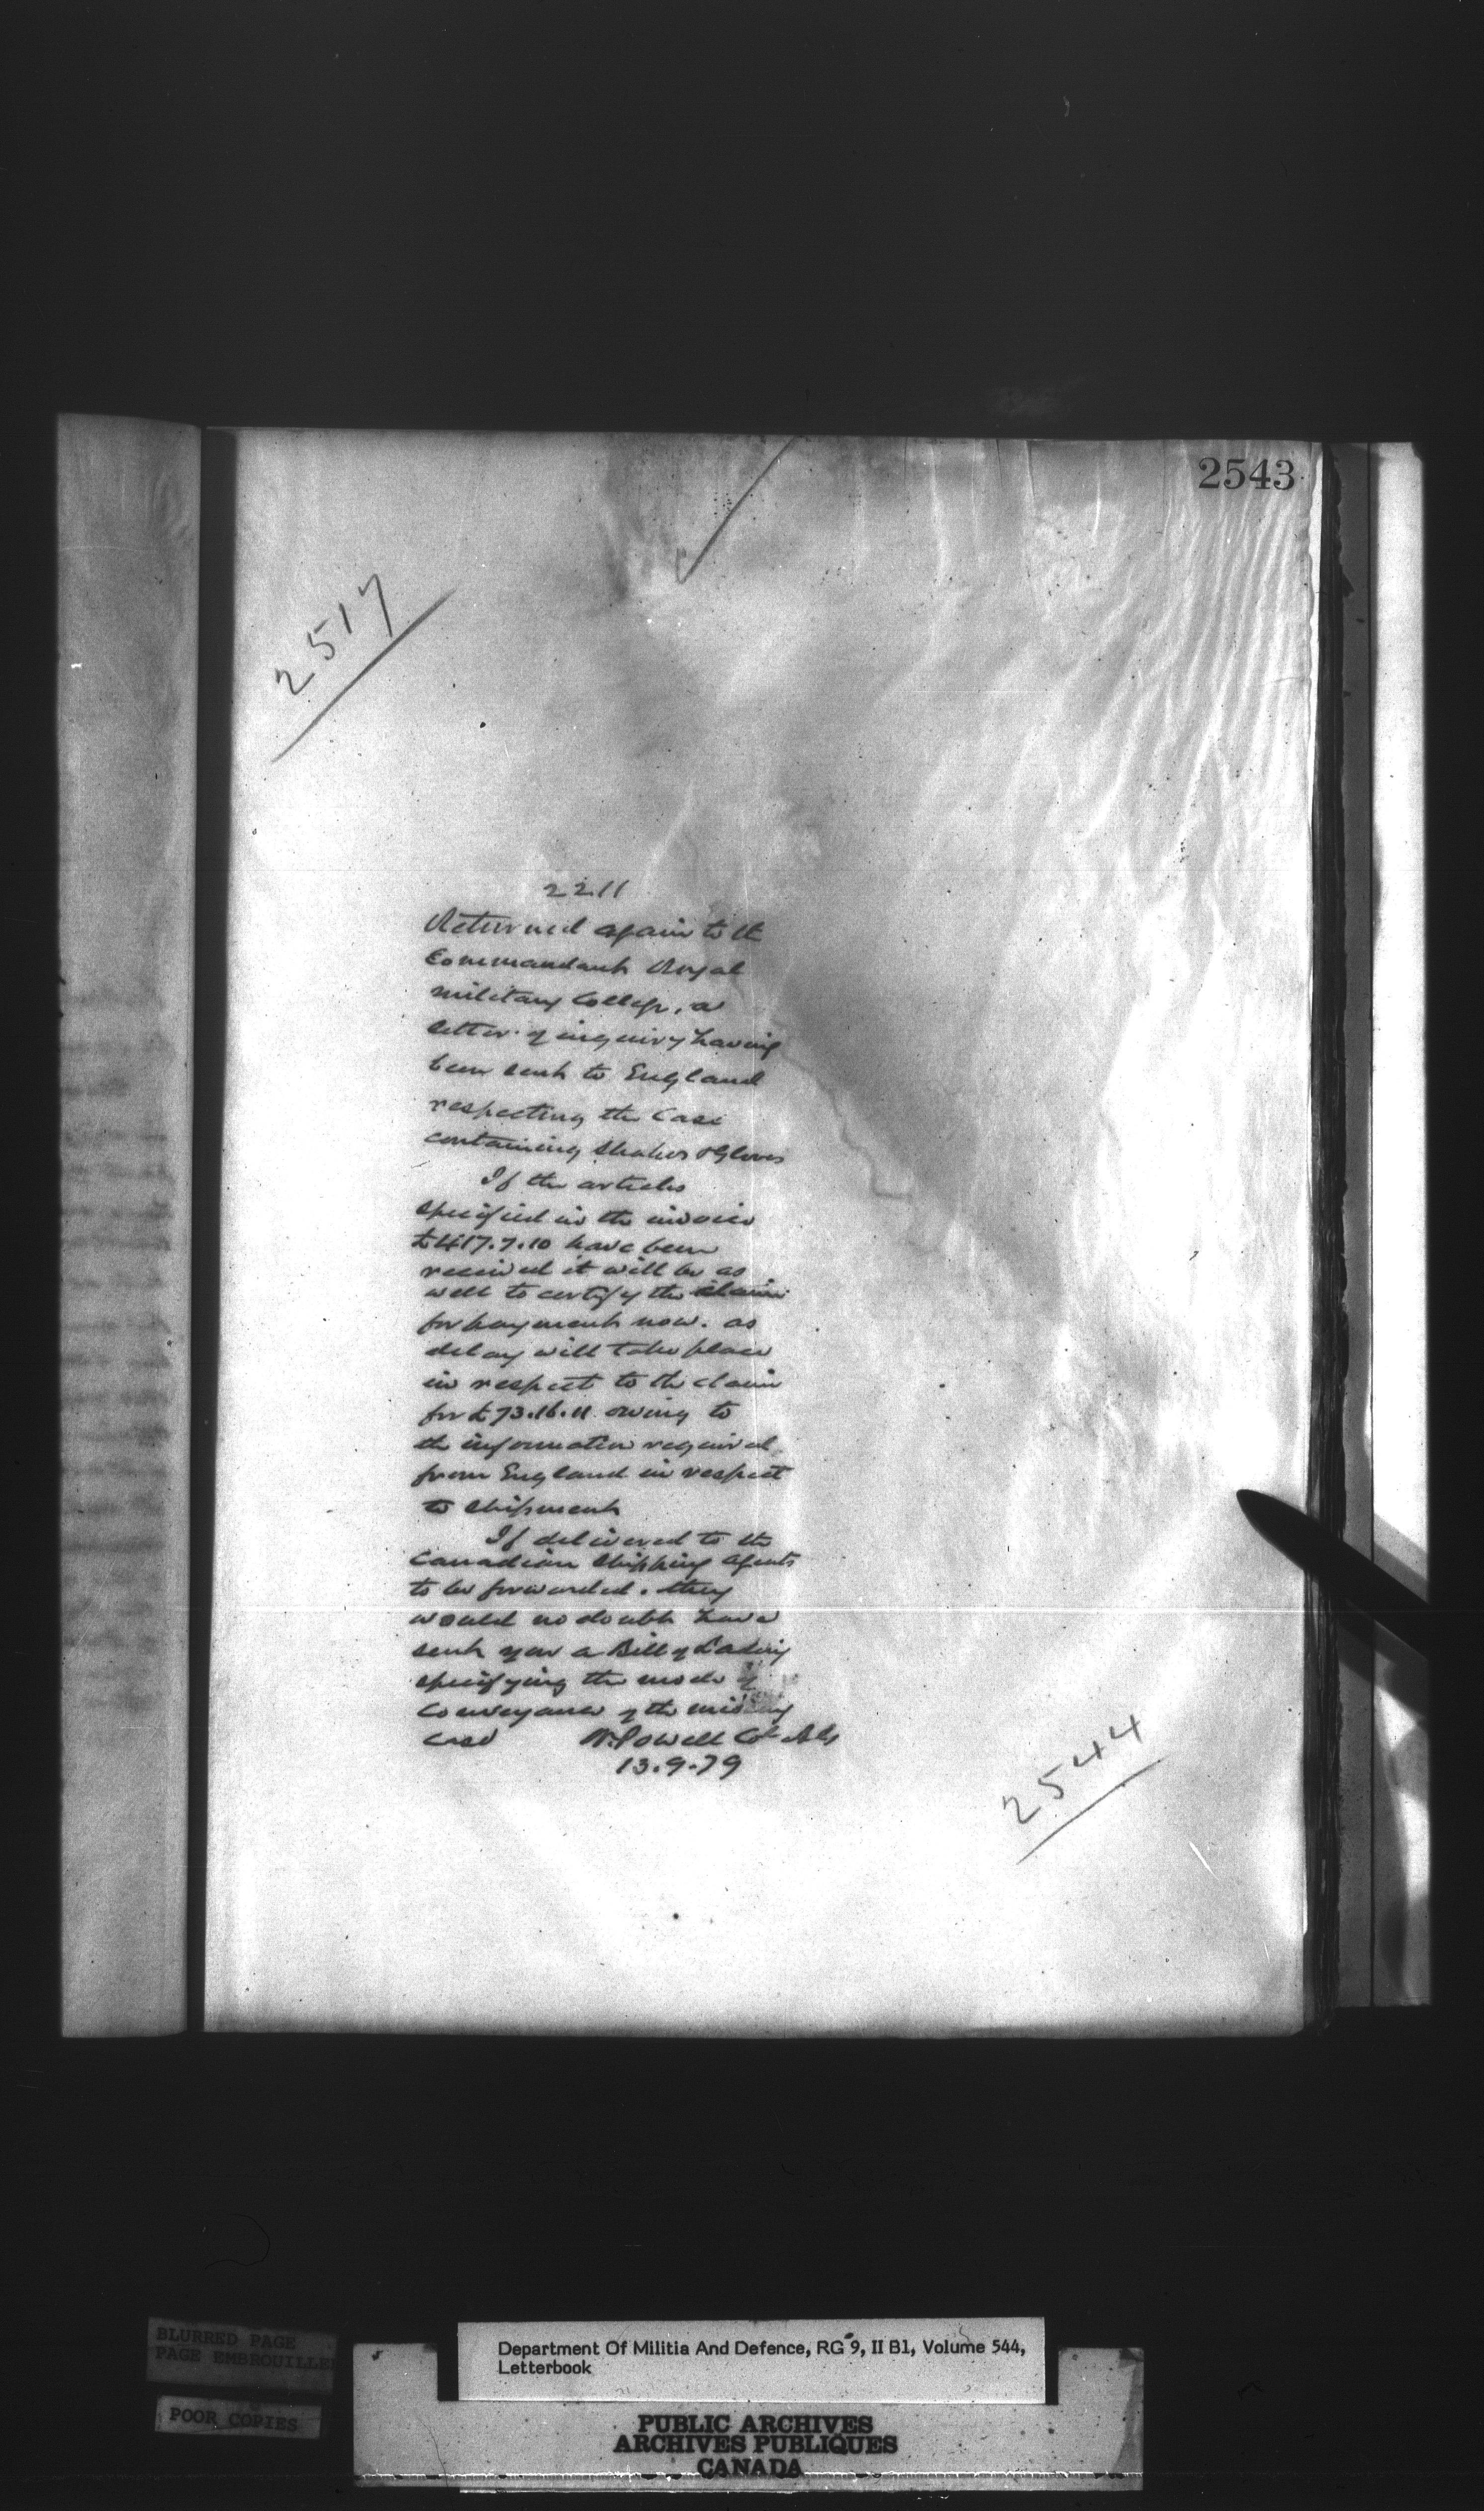 2543
2517
2211
Returned again to the
Commandant Royal
Military College, a
letter of inquiry having
been sent to England
respecting the Case
containing Shakos & Gloves
If the articles
specified in the invoice
£417.7.10 have been
received it will be as
well to certify the claim
for payment now. as
delay will take place
in respect to the claim
for £73.16.11 owing to
the information required
from England in respect
to shipment
If delivered to the
Canadian Shipping Agents
to be forwarded. they
would no doubt have
sent you a Bill of Lading
specifying the mode of
conveyance of the missing
case W. Powell Col
13.9.79
2544
BLURRED PAGE
PAGE EMBROUILLE
POOR COPIES
Department Of Militia And Defence, RG 9, II B1, Volume 544,
Letterbook
PUBLIC ARCHIVES
ARCHIVES PUBLIQUES
CANADA